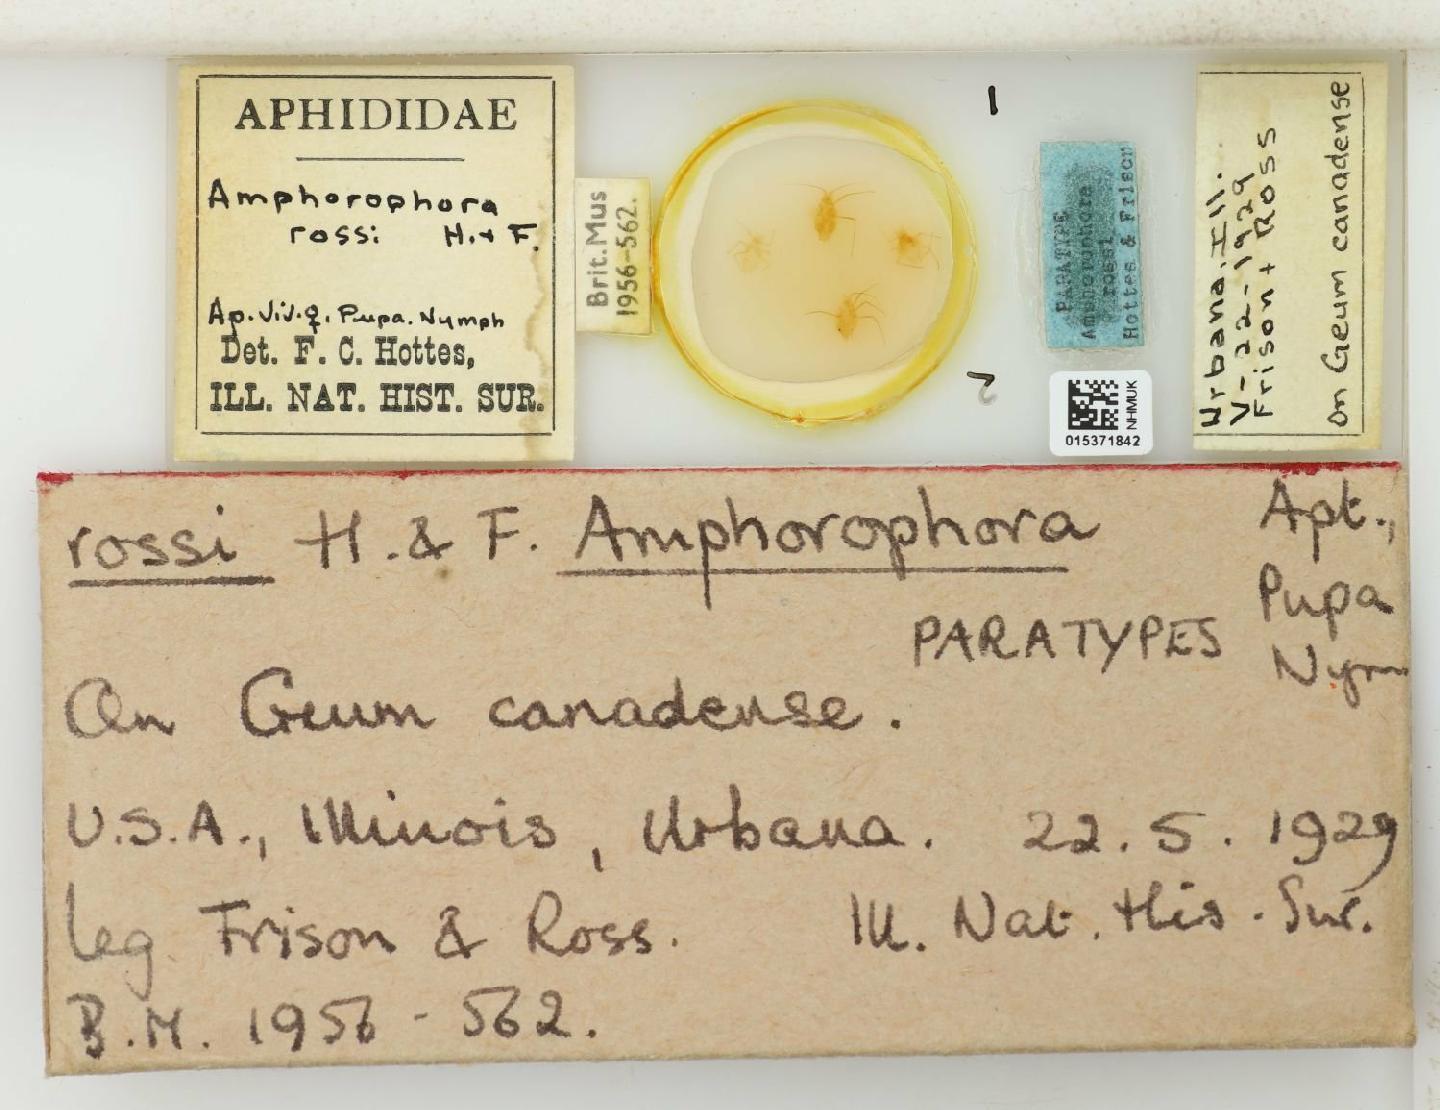 APHIDIDAE
Amphorophora
rossi H. + F.
Ap. viv. ♀. Pupa. Nymph
Det. F. C. Hottes,
ILL. NAT. HIST. SUR.
Brit. Mus
1956-562.
1
2
PARATYPE
Amphorophora
rossi
Hottes & Frison
NHMUK
015371842
Urbana. Ill.
V-22-1929
Frison + Ross
On Geum canadense
rossi H. & F. Amphorophora
Apt.,
Pupa
Nym
PARATYPES
On Geum canadense.
U.S.A., Illinois, Urbana. 22. 5. 1929
leg Frison & Ross. Ill. Nat. His. Sur.
B.M. 1956 - 562.